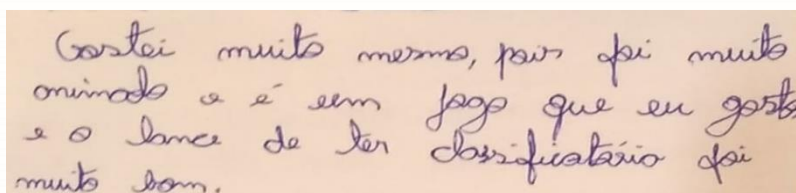 Gostei muito mesmo, pois foi muito
animado e é um jogo que eu gosto
e o lance de ter classificatório foi
muito bom.